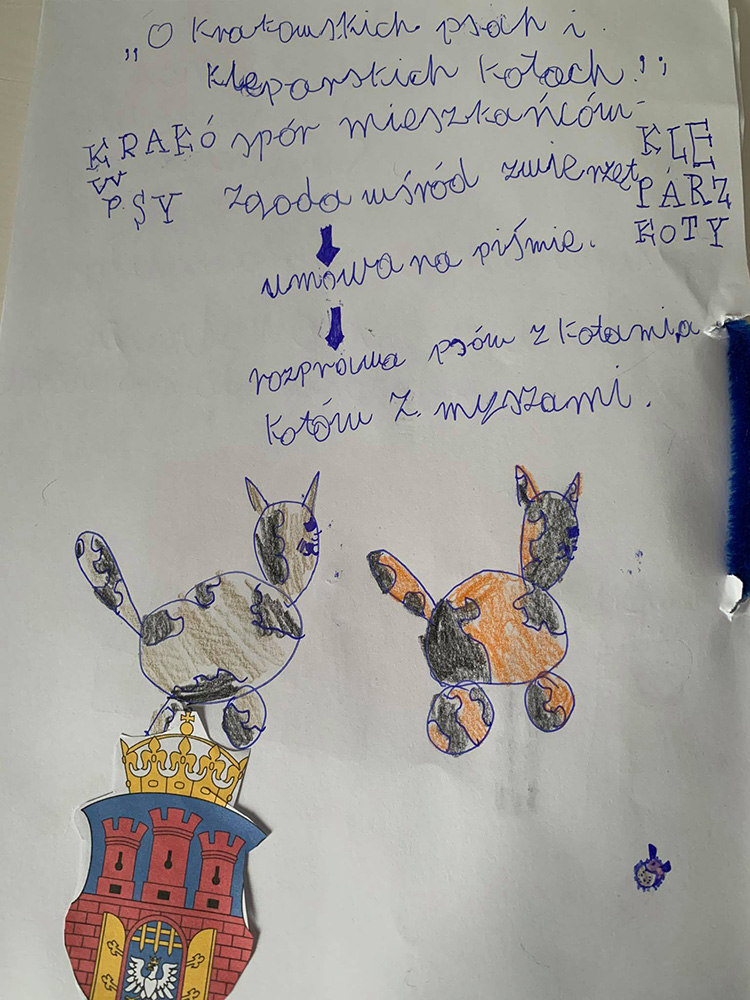 „O Krakowskich psach i
Kleparskich Kotach."
KRAKÓ
W
PSY
spór mieszkańców-
zgoda wśród zwierzęt
KLE
PÁRZ
KOTY
umowa na piśmie.
rozprawa psów z kotami,a
kotów z myszami.